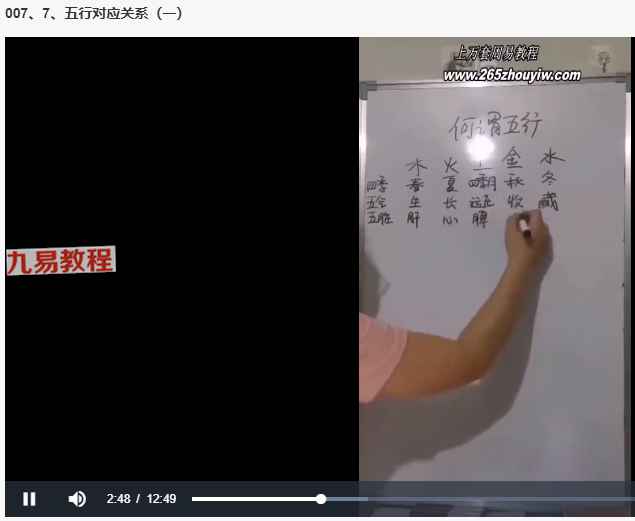 007、7、五行对应关系（一）
上万套周易教程
www.265zhouyiw.com
何谓五行
木 火 土 金 水
四季 春 夏 四季月 秋 冬
生 长 收 藏
五脏 肝 心 脾
九易教程
2:48 / 12:49